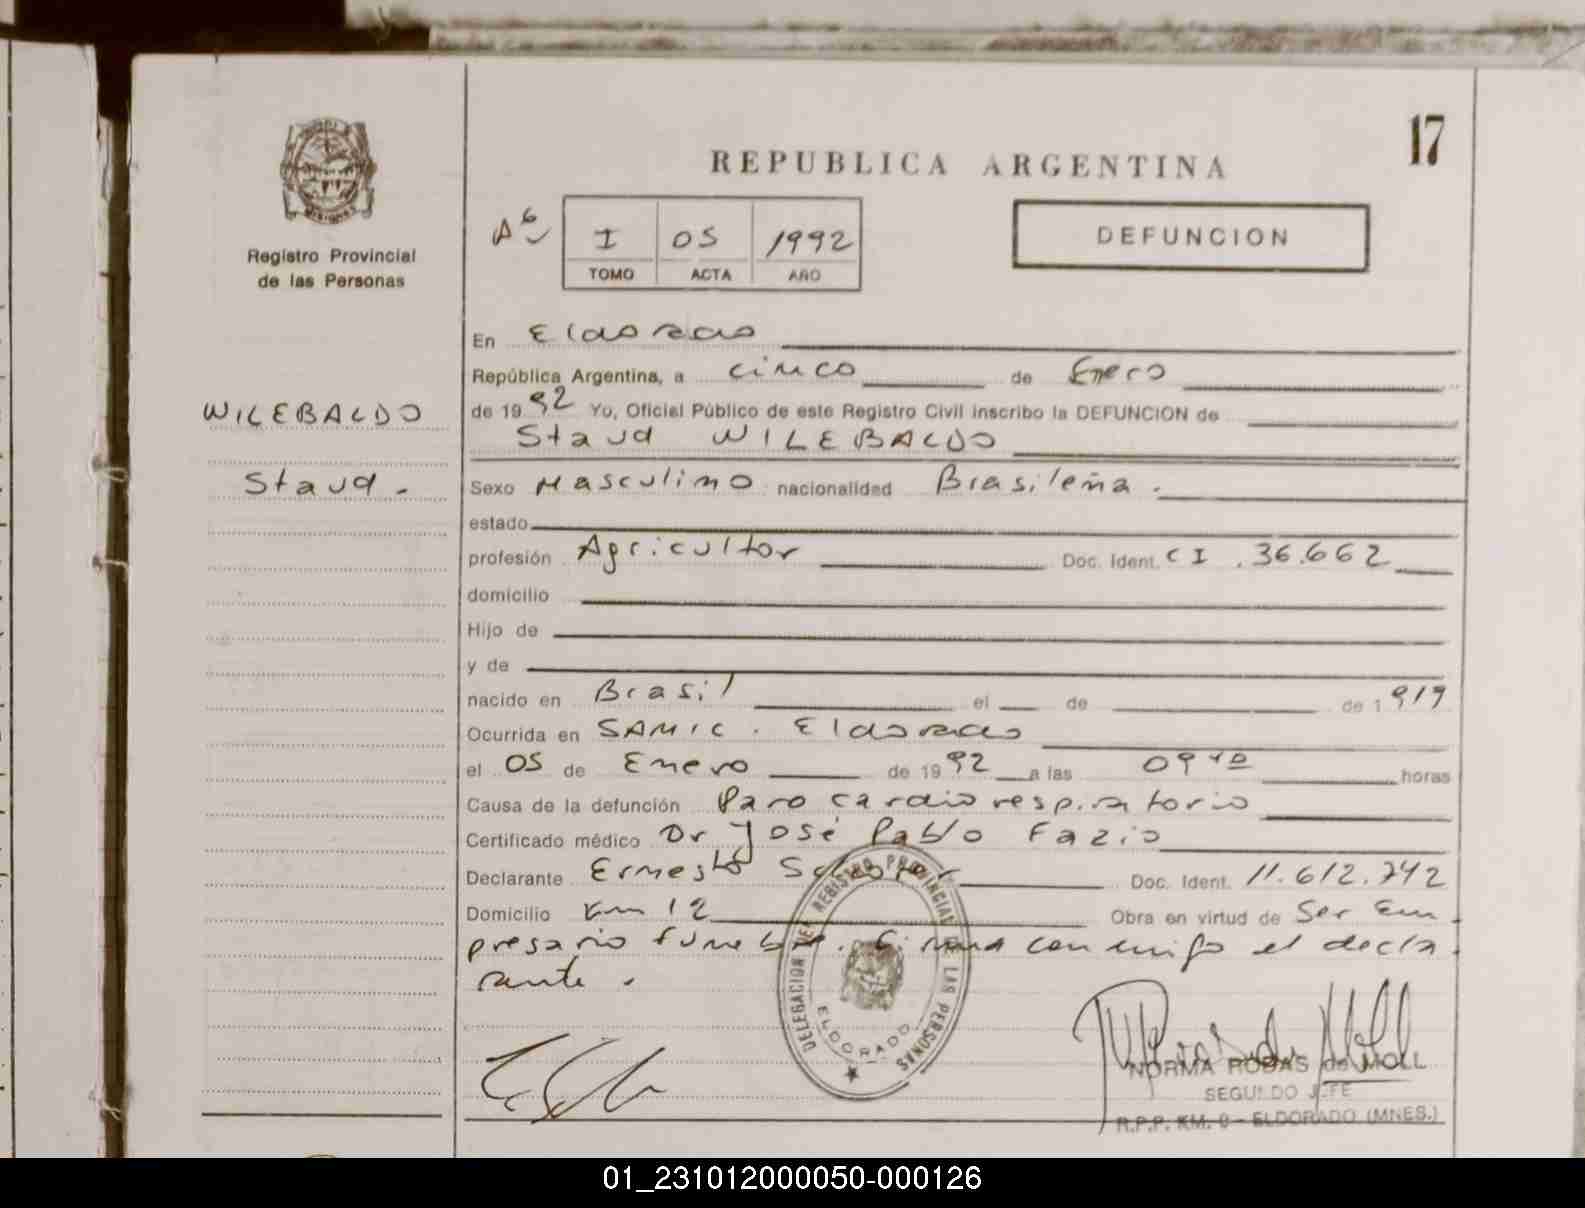 17
REPUBLICA ARGENTINA
MISIONES
Registro Provincial
de las Personas
I OS 1992
TOMO ACTA AÑO
DEFUNCION
WILEBALDO
Staud.
En Eldorado
República Argentina, a cinco de Enero
de 1992 Yo, Oficial Público de este Registro Civil inscribo la DEFUNCION de
Staud WILEBALDO
Sexo Masculino nacionalidad Brasileña.
estado
profesión Agricultor Doc. Ident. CI. 36.662
domicilio
Hijo de
y de
nacido en Brasil el de de 1919
Ocurrida en SAMIC. Eldorado
el 05 de Enero de 1992 a las 09 horas
Causa de la defunción Paro cardio respiratorio
Certificado médico Dr José Pablo Fazio
Declarante Ernesto Doc. Ident. 11.612.742
Domicilio Km 12 Obra en virtud de Ser Em
presario fúnebre. Firma conmigo el decla
rante.
DELEGACION DEL REGISTRO PROVINCIAL DE LAS PERSONAS
ELDORADO
NORMA RODAS de MOLL
SEGUNDO JEFE
R.P.P. KM. 9 - ELDORADO (MNES.)
01_231012000050-000126